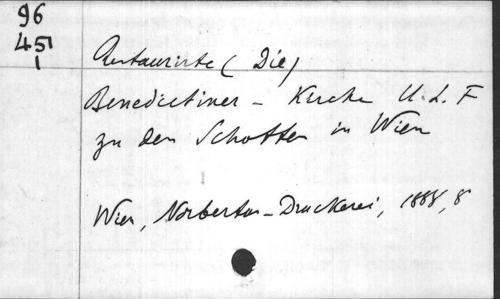 96
451
1
Restaurirte (Die)
Benedictiner - Kirche U. L. F
zu den Schotten in Wien
Wien, Norbertus-Druckerei, 1888, 8